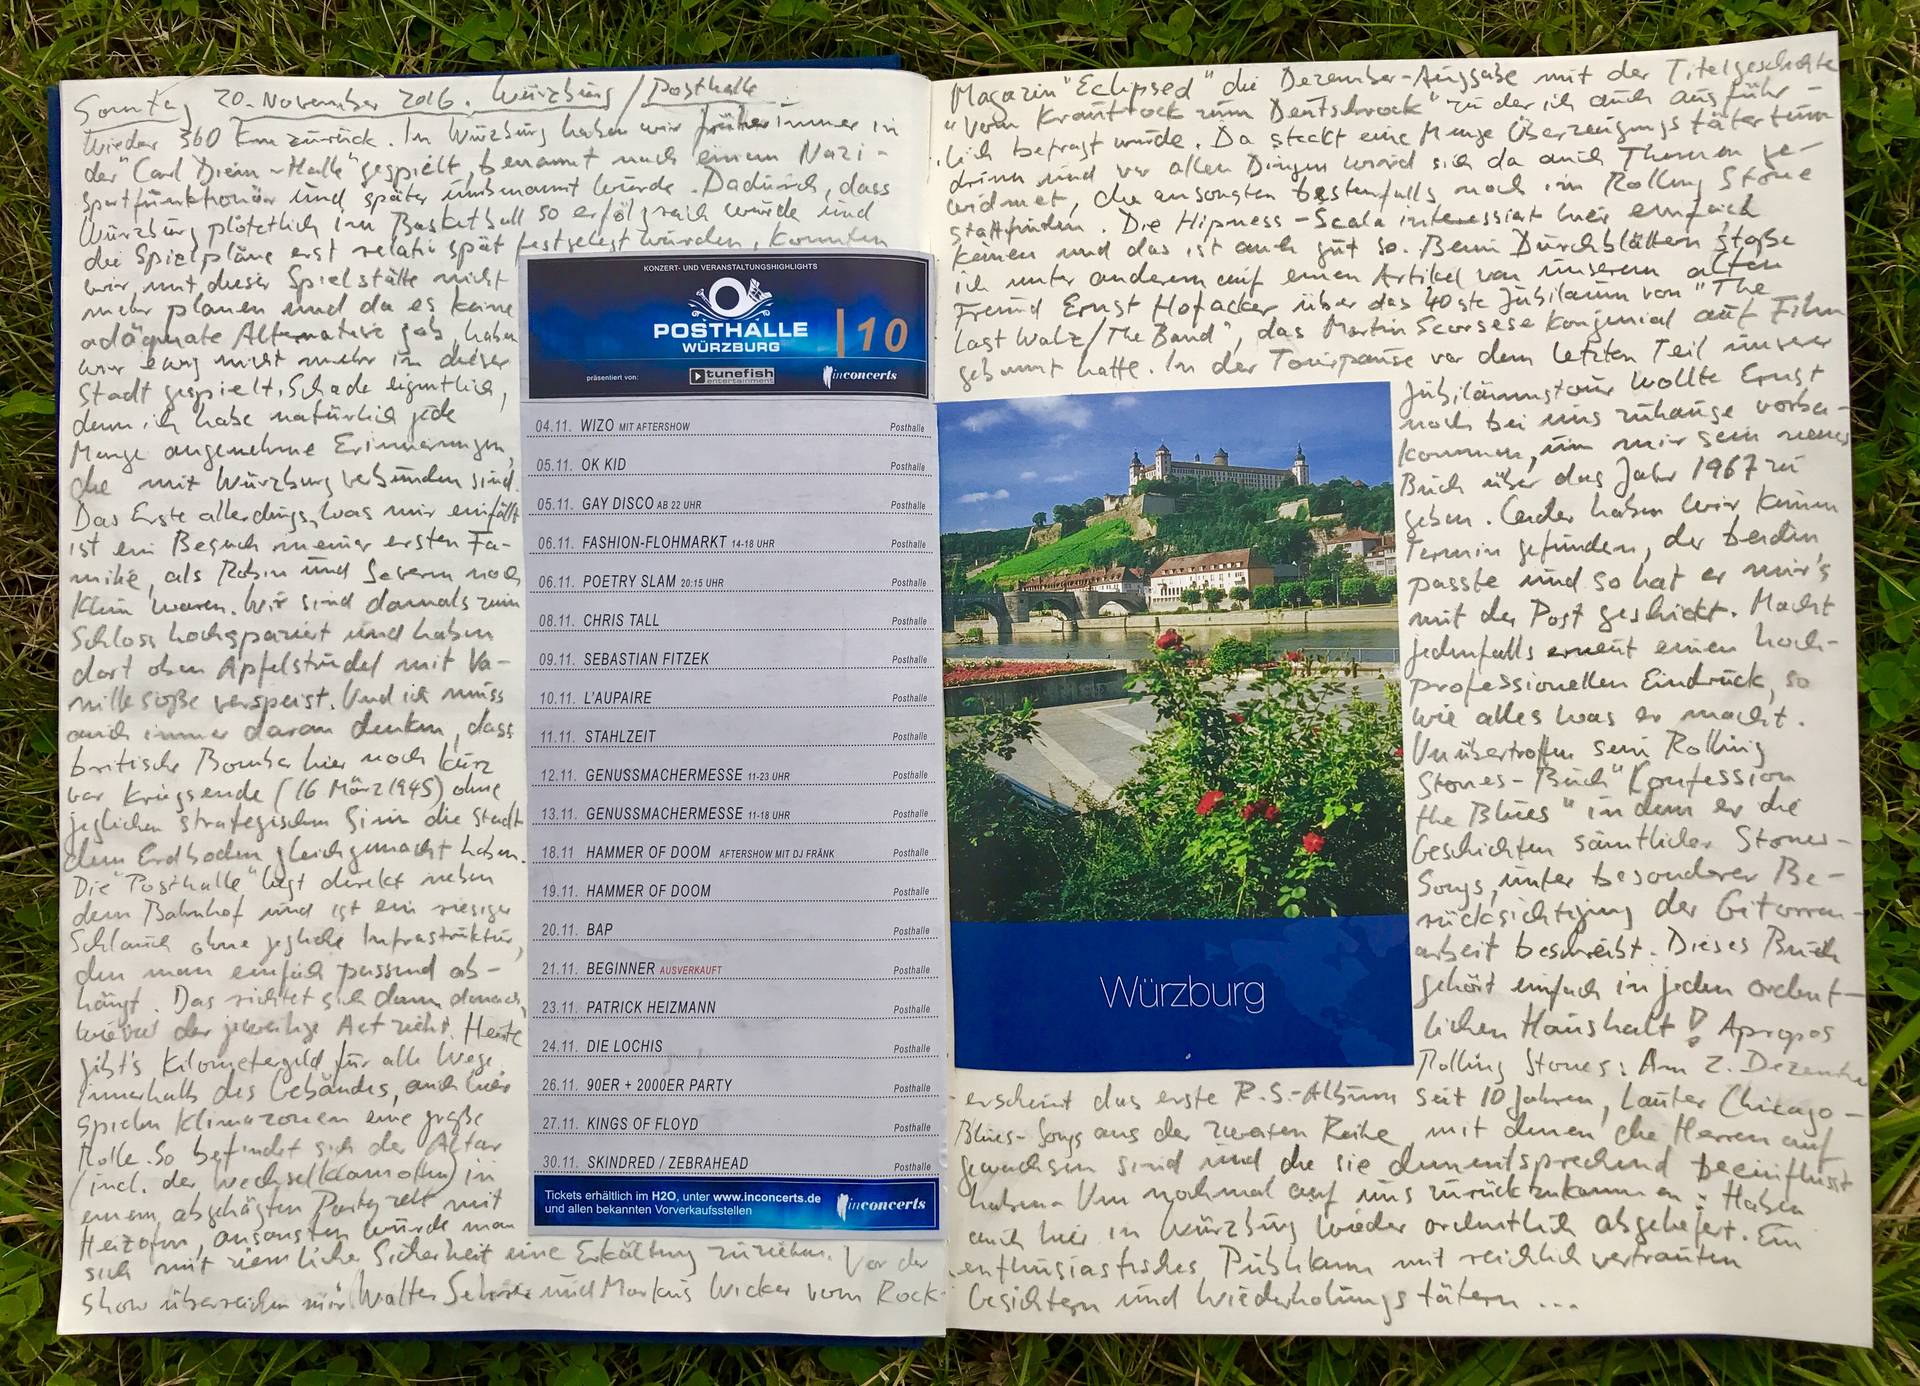 Sonntag 20. November 2016. Würzburg / Posthalle
Wieder 360 km zurück. In Würzburg haben wir früher immer in
der "Carl Diem-Halle" gespielt, benannt nach einem Nazi-
sportfunktionär und später umbenannt wurde. Dadurch, dass
Würzburg plötzlich im Basketball so erfolgreich wurde und
die Spielpläne erst relativ spät festgelegt wurden, konnten
wir mit dieser Spielstätte nicht
mehr planen und da es keine
adäquate Alternative gab, haben
wir ewig nicht mehr in dieser
Stadt gespielt. Schade eigentlich,
denn ich habe natürlich jede
Menge angenehme Erinnerungen,
die mit Würzburg verbunden sind.
Das Erste allerdings, was mir einfällt
ist ein Besuch meiner ersten Fa-
milie, als Robin und Severin noch
klein waren. Wir sind damals zum
Schloss hochspaziert und haben
dort oben Apfelstrudel mit Va-
nillesoße verspeist. Und ich muss
auch immer daran denken, dass
britische Bomber hier noch kurz
vor Kriegsende (16 März 1945) ohne
jeglichen strategischen Sinn die Stadt
dem Erdboden gleichgemacht haben.
Die "Posthalle" liegt direkt neben
dem Bahnhof und ist ein riesiger
Schlauch ohne jegliche Infrastruktur,
den man einfach passend ab-
hängt. Das richtet sich dann danach,
wieviel der jeweilige Act zieht. Heute
gibt's Kilometergeld für alle Wege
innerhalb des Gebäudes, auch hier
spielen Klimazonen eine große
Rolle. So befindet sich der Altar
(incl. der Wechselklamotten) in
einem abgehängten Partyzelt mit
Heizofen, ansonsten würde man
sich mit ziemlicher Sicherheit eine Erkältung zuziehen. Vor der
Show überreichen mir Walter und Markus Wicker vom Rock-
KONZERT- UND VERANSTALTUNGSHIGHLIGHTS
POSTHALLE
WÜRZBURG
|10
präsentiert von: tunefish entertainment inconcerts
04.11. WIZO MIT AFTERSHOW Posthalle
05.11. OK KID Posthalle
05.11. GAY DISCO AB 22 UHR Posthalle
06.11. FASHION-FLOHMARKT 14-18 UHR Posthalle
06.11. POETRY SLAM 20:15 UHR Posthalle
08.11. CHRIS TALL Posthalle
09.11. SEBASTIAN FITZEK Posthalle
10.11. L'AUPAIRE Posthalle
11.11. STAHLZEIT Posthalle
12.11. GENUSSMACHERMESSE 11-23 UHR Posthalle
13.11. GENUSSMACHERMESSE 11-18 UHR Posthalle
18.11 HAMMER OF DOOM AFTERSHOW MIT DJ FRÄNK Posthalle
19.11. HAMMER OF DOOM Posthalle
20.11. BAP Posthalle
21.11. BEGINNER AUSVERKAUFT Posthalle
23.11. PATRICK HEIZMANN Posthalle
24.11. DIE LOCHIS Posthalle
26.11. 90ER + 2000ER PARTY Posthalle
27.11. KINGS OF FLOYD Posthalle
30.11. SKINDRED / ZEBRAHEAD Posthalle
Tickets erhältlich im H2O, unter www.inconcerts.de
und allen bekannten Vorverkaufsstellen
inconcerts
Magazin "Eclipsed" die Dezember-Ausgabe mit der Titelgeschichte
"Vom Krautrock zum Deutschrock" zu der ich auch ausführ-
lich befragt wurde. Da steckt eine Menge Überzeugungstätertum
drinn und vor allen Dingen wird sich da auch Themen ge-
widmet, die ansonsten bestenfalls noch im Rolling Stone
stattfinden. Die Hipness-Scala interessiert hier einfach
keinen und das ist auch gut so. Beim Durchblättern stoße
ich unter anderem auf einen Artikel von unserem alten
Freund Ernst Hofacker über das 40gste Jubiläum von "The
Last Walz/The Band", das Martin Scorsese kongenial auf Film
gebannt hatte. In der Tourpause vor dem letzten Teil unserer
Jubiläumstour wollte Ernst
noch bei uns zuhause vorbei-
kommen, um mir sein neues
Buch über das Jahr 1967 zu
geben. Leider haben wir keinen
Termin gefunden, der beiden
passte und so hat er mir's
mit der Post geschickt. Macht
jedenfalls erneut einen hoch-
professionellen Eindruck, so
wie alles was er macht.
Unübertroffen sein Rolling
Stones-Buch "Confession
the Blues" in dem er die
Geschichten sämtlicher Stones-
Songs, unter besonderer Be-
rücksichtigung der Gitarren-
arbeit beschreibt. Dieses Buch
gehört einfach in jeden ordent-
lichen Haushalt! Apropos
Rolling Stones: Am 2. Dezember
erscheint das erste R.S.-Album seit 10 Jahren, lauter Chicago-
Blues-Songs aus der zweiten Reihe, mit denen die Herren auf
gewachsen sind und die sie dementsprechend beeinflusst
haben. Um nochmal auf uns zurückzukommen: Haben
auch hier in Würzburg wieder ordentlich abgeliefert. Ein
enthusiastisches Publikum mit reichlich vertrauten
Gesichtern und Wiederholungstätern ...
Würzburg